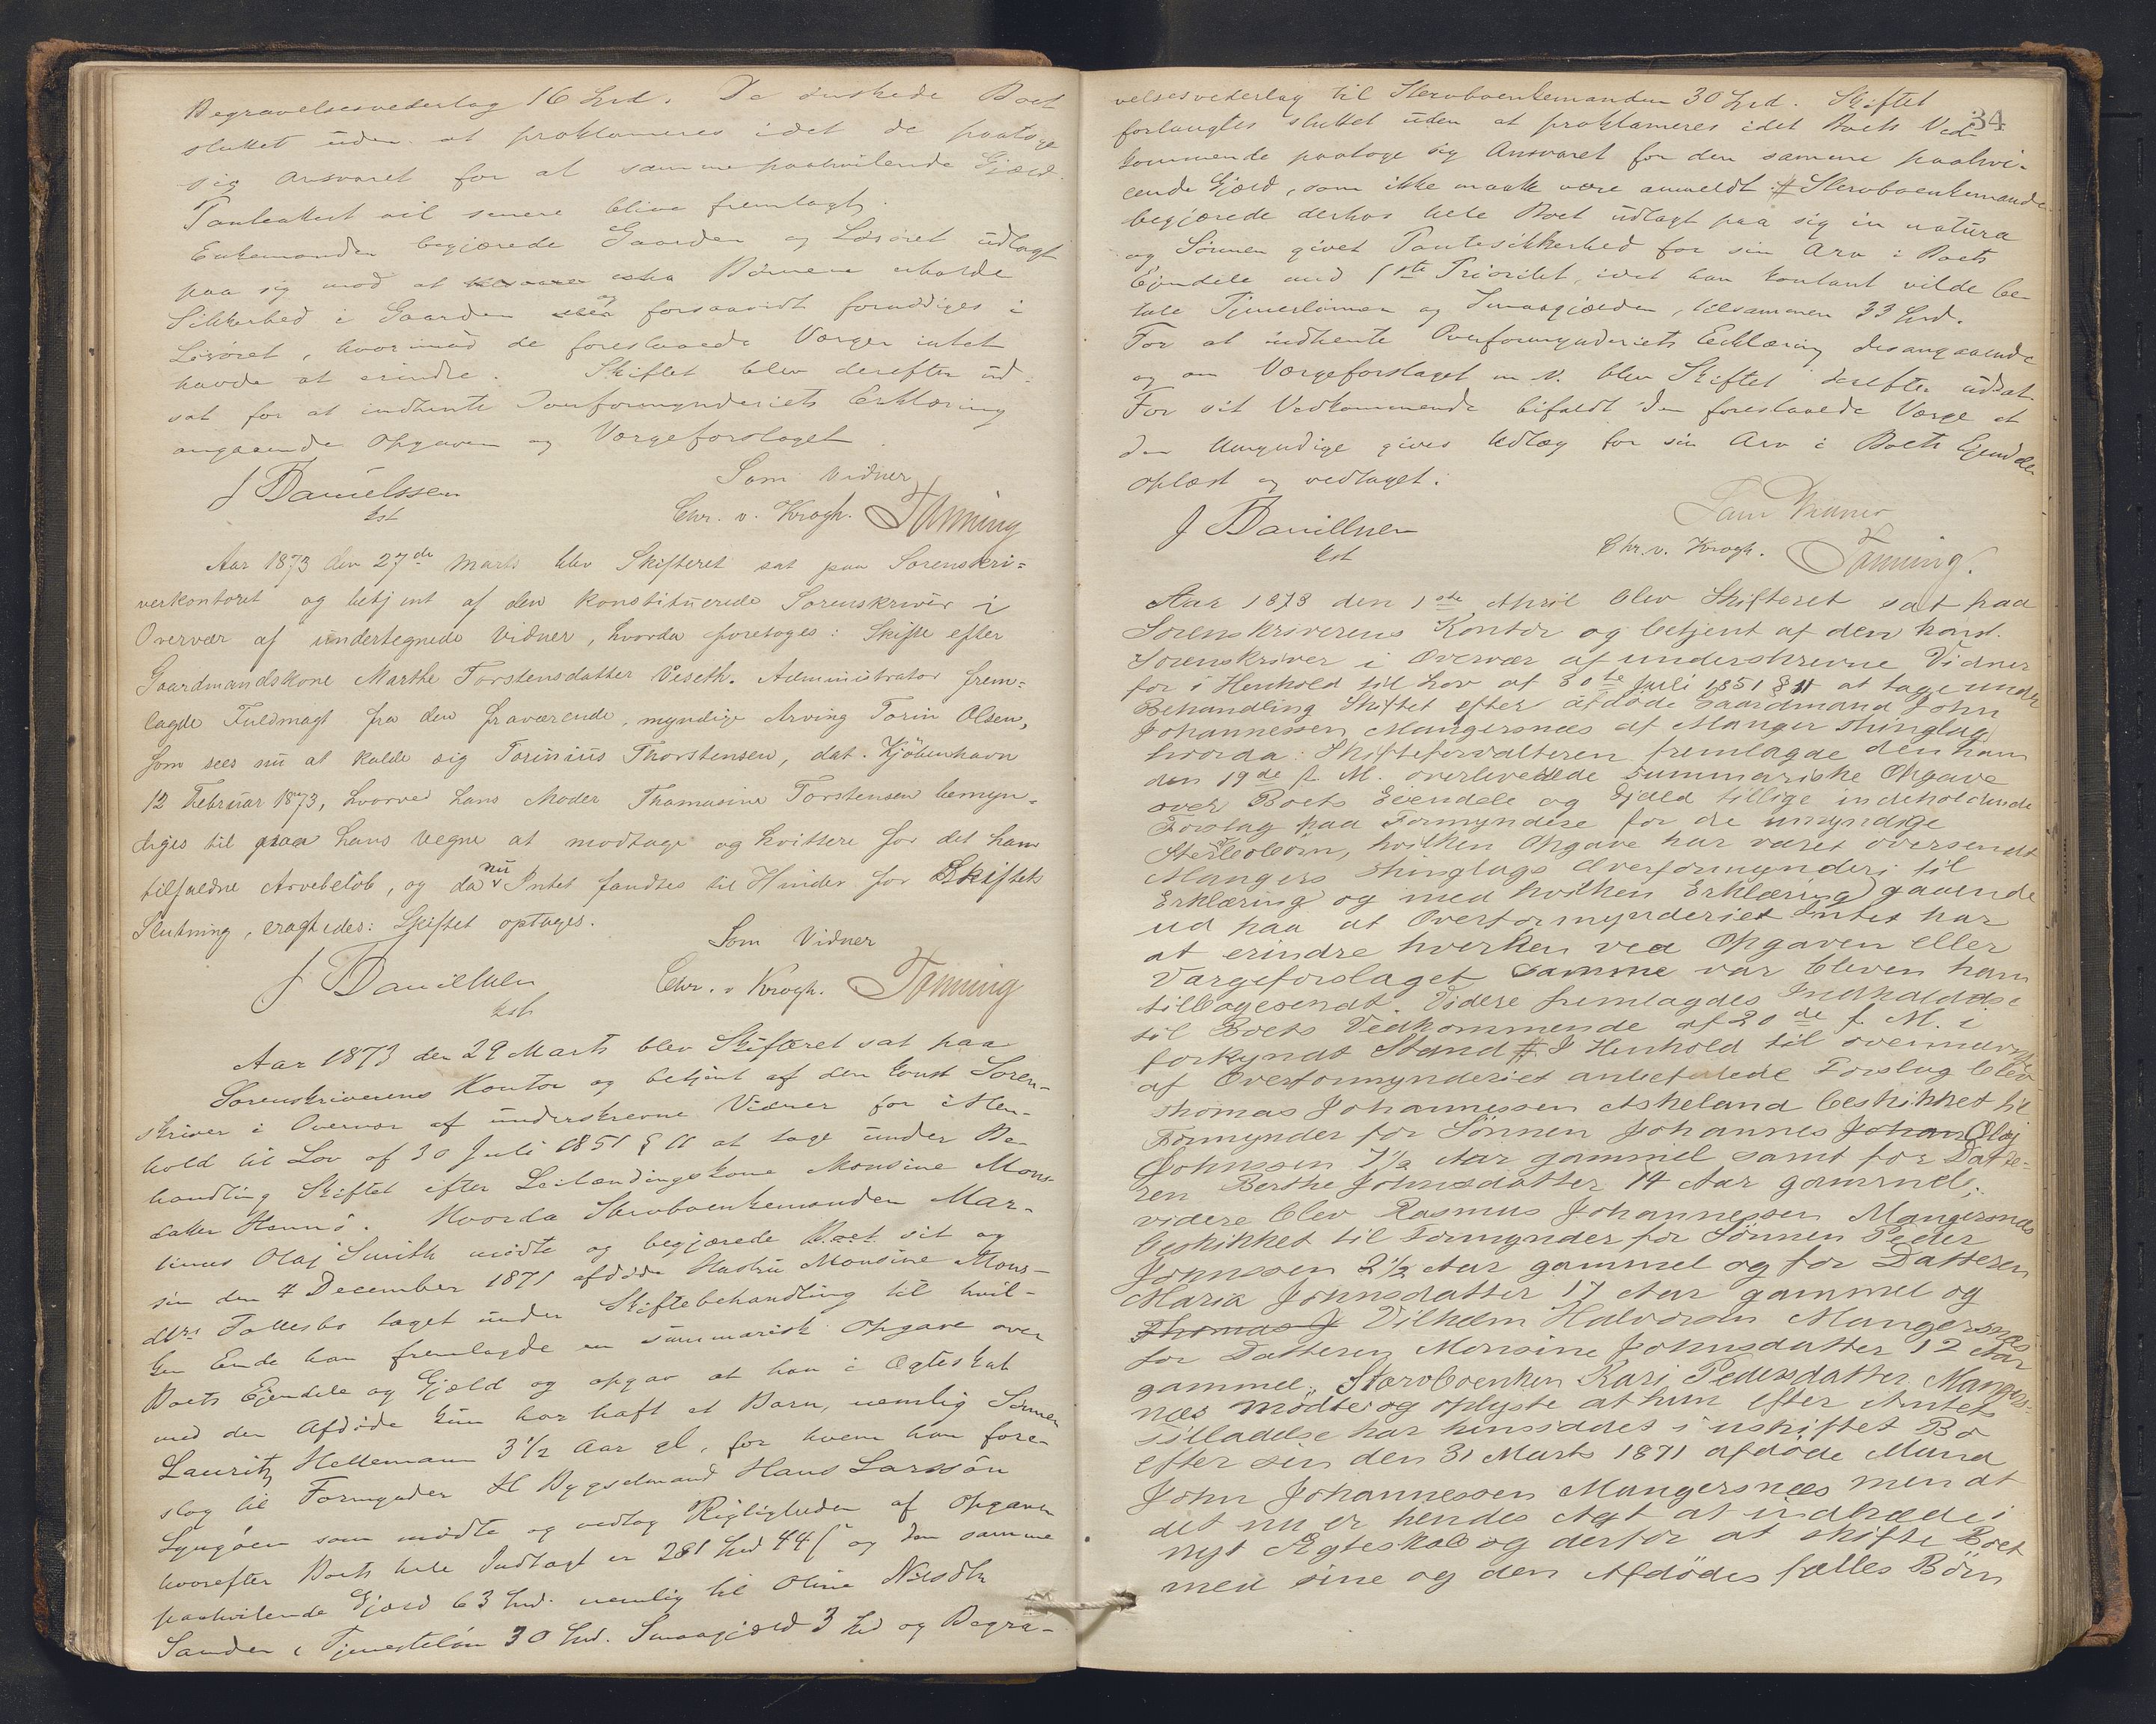 Begravelsesvederlag 16 Spd. De önskede Boet
sluttet uden at proklameres idet de paatoge
sig Ansvaret for at samme paahvilende Gjæld.
Panteattest vil senere blive fremlagt.
Enkemanden begjærede Gaarden og Lösöret udlagt
paa sig mod at Börnene erholde
Sikkerhed i Gaarden og forsaavidt fornödiges i
Lösöret, hvorimod de foreslaaede Værger intet
havde at erindre. Skiftet blev derefter ud-
sat for at indhente Overformynderiets Erklæring
angaaende Opgaven og Værgeforslaget.
J Danielssen
kst
Som Vidner
Chr. v. Krogh. Tönning
Aar 1873 den 27de Marts blev Skifteret sat paa Sorenskri=
verkontoret og betjent af den konstituerede Sorenskriver i
Overvær af undertegnede Vidner, hvorda foretoges: Skifte efter
Gaardmandskone Marthe Torstensdatter Viseth. Administrator frem=
lagde Fuldmagt fra den fraværende, myndige Arving Torin Olsen,
som sees nu at kalde sig Torinius Thorstensen, dat. Kjöbenhavn
12 Februar 1873, hvorved hans Moder Thomasine Torstensen bemyn=
diges til paa hans vegne at modtage og kvittere for det ham
tilfaldne Arvebelöb, og da nu Intet fandtes til Hinder for Skiftets
Slutning, eragtedes: Skiftet optages.
J Danielssen
kst
Som Vidner
Chr. v Krogh. Tönning
Aar 1873 den 29 Marts blev Skifteret sat paa
Sorenskriverens Kontor og betjent af den konst Soren-
skriver i Overvær af underskrevne Vidner for i Hen-
hold til Lov af 30 Juli 1851 § 11 at tage under Be
handling Skiftet efter Leilændingskone Monsine Mons-
datter Hennö. Hvorda Stervboenkemanden Mar-
tinus Olaj Smith mödte og begjærede Boet sit og
sin den 4 December 1871 afdöde Hustru Monsine Mons-
dtrs Fællesbo taget under Skiftebehandling til hvil-
ken Ende han fremlagde en summarisk Opgave over
Boets Ejendele og Gjæld og opgav at han i Ægteskab
med den Afdöde kun har haft et Barn, nemlig Sönnen
Lauritz Hellemann 3 1/2 Aar gl, for hvem han fore-
slog til Formynder Bygselmand Hans Larssön
Lyngöen som mödte og vedtog Rigtigheden af Opgaven
hvorefter Boets hele Indtægt er 281 Spd 44 ß og den samme
paahvilende Gjæld 63 Spd. nemlig til Oline Nilsdtr
Sanden, Tjenestelön 30 Spd. Smaagjæld 3 Spd og Begra-
34
velsesvederlag til Stervboenkemanden 30 Spd. Skiftet
forlangtes sluttet uden at proklameres idet Boets Ved-
kommende paatoge sig Ansvaret for den samme paahvi-
lende Gjæld, som ikke maatte være anmeldt. # Stervboenkemanden
begjærede derhos hele Boet udlagt paa sig in natura
og Sönnen givet Pantesikkerhed for sin Arv i Boets
Ejendele med 1ste Prioritet, idet han kontant vilde be-
tale Tjenerlönnen og Smaagjælden, tilsammen 33 Spd.
For at indhente Overformynderiets Erklæring desangaaende
og om Værgeforslaget m. V. blev Skiftet derefter udsat.
For sit Vedkommende bifaldt den foreslaaede Værge at
den Umyndige gives Udlæg for sin Arv i Boets Ejendele
oplæst og vedtaget.
J Danielssen
kst
Som Vidner
Chr. v. Krogh. Tönning.
Aar 1873 den 1ste April blev Skifteret sat paa
Sorenskriverens Kontor og betjent af den konst.
Sorenskriver i Overvær af underskrevne Vidner
for i Henhold til Lov af 30te Juli 1851 § 11 at tage under
Behandling Skiftet efter afdöde Gaardmand John
Johannessen Mangersnæs af Manger Thinglag
hvorda: Skifteforvalteren fremlagde den ham
den 19de f. M. overleverede summariske Opgave
over Boets Eiendele og Gjæld tillige indeholdende
Forslag paa Formyndere for de umyndige
Stervbobörn, hvilken Opgave har været oversendt
Mangers Thinglags Overformynderi til
Erklæring og med hvilken Erklæring gaaende
ud paa at Overformynderiet Intet har
at erindre hverken ved Opgaven eller
Værgeforslaget samme var bleven ham
tilbagesendt. Videre fremlagdes Indkaldelse
til Boets Vedkommende af 20de f. M. i
forkyndt Stand # I Henhold til ovennævnte
af Overformynderiet anbefalede Forslag blev
Thomas Johannessen Askeland beskikket til
Formynder for Sönnen Johannes Johan Olaj
Johnssen 7 1/2 Aar gammel samt for Datte-
ren Berthe Johnsdatter 14 Aar gammel;
videre blev Rasmus Johannessen Mangersnæs
beskikket til Formynder for Sönnen Peder
Johnssen 2 1/2 Aar gammel og for Datteren
Maria Johnsdatter 17 Aar gammel og
Thomas J Vilhelm Halvorsen Mangersnæs
for Datteren Monsine Johnsdatter 12 Aar
gammel. Stervboenken Kari Pedersdatter Mangers-
næs mödte og oplyste at hun efter Amtets
tilladelse har hensiddet i uskiftet Bo
efter sin den 31 Marts 1871 afdöde Mand
John Johannessen Mangersnæs men at
det nu er hendes Agt at indtræde i
nyt Ægteskab og derfor at skifte Boet
med sine og den Afdödes fælles Börn